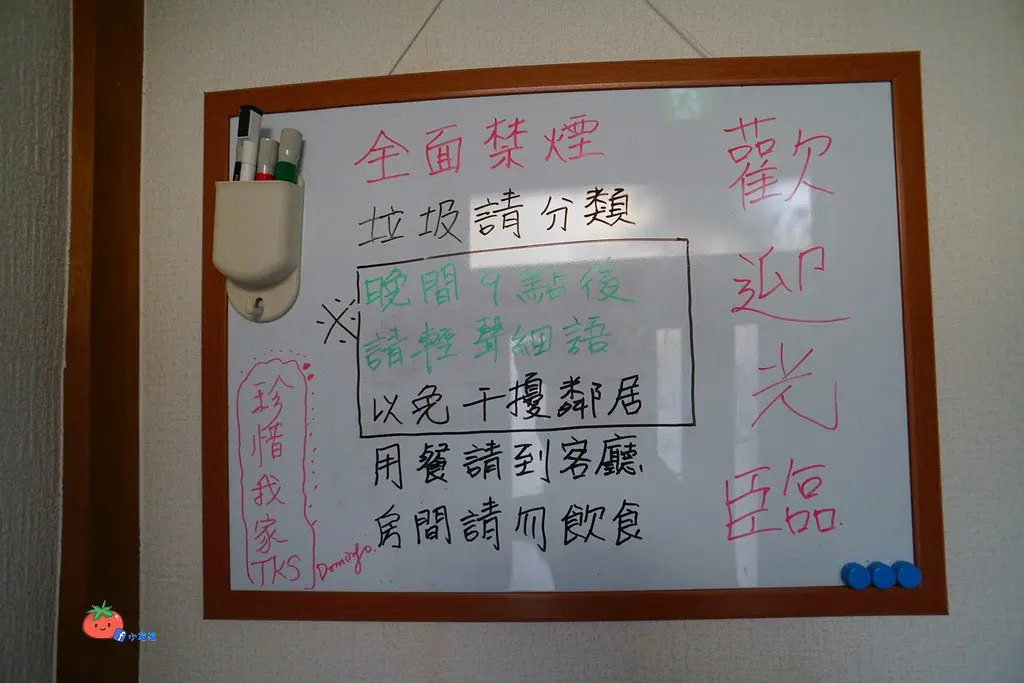 歡迎光臨
全面禁煙
垃圾請分類
※
晚間9點後
請輕聲細語
以免干擾鄰居
用餐請到客廳
房間請勿飲食
珍惜我家TKS
Domingo.